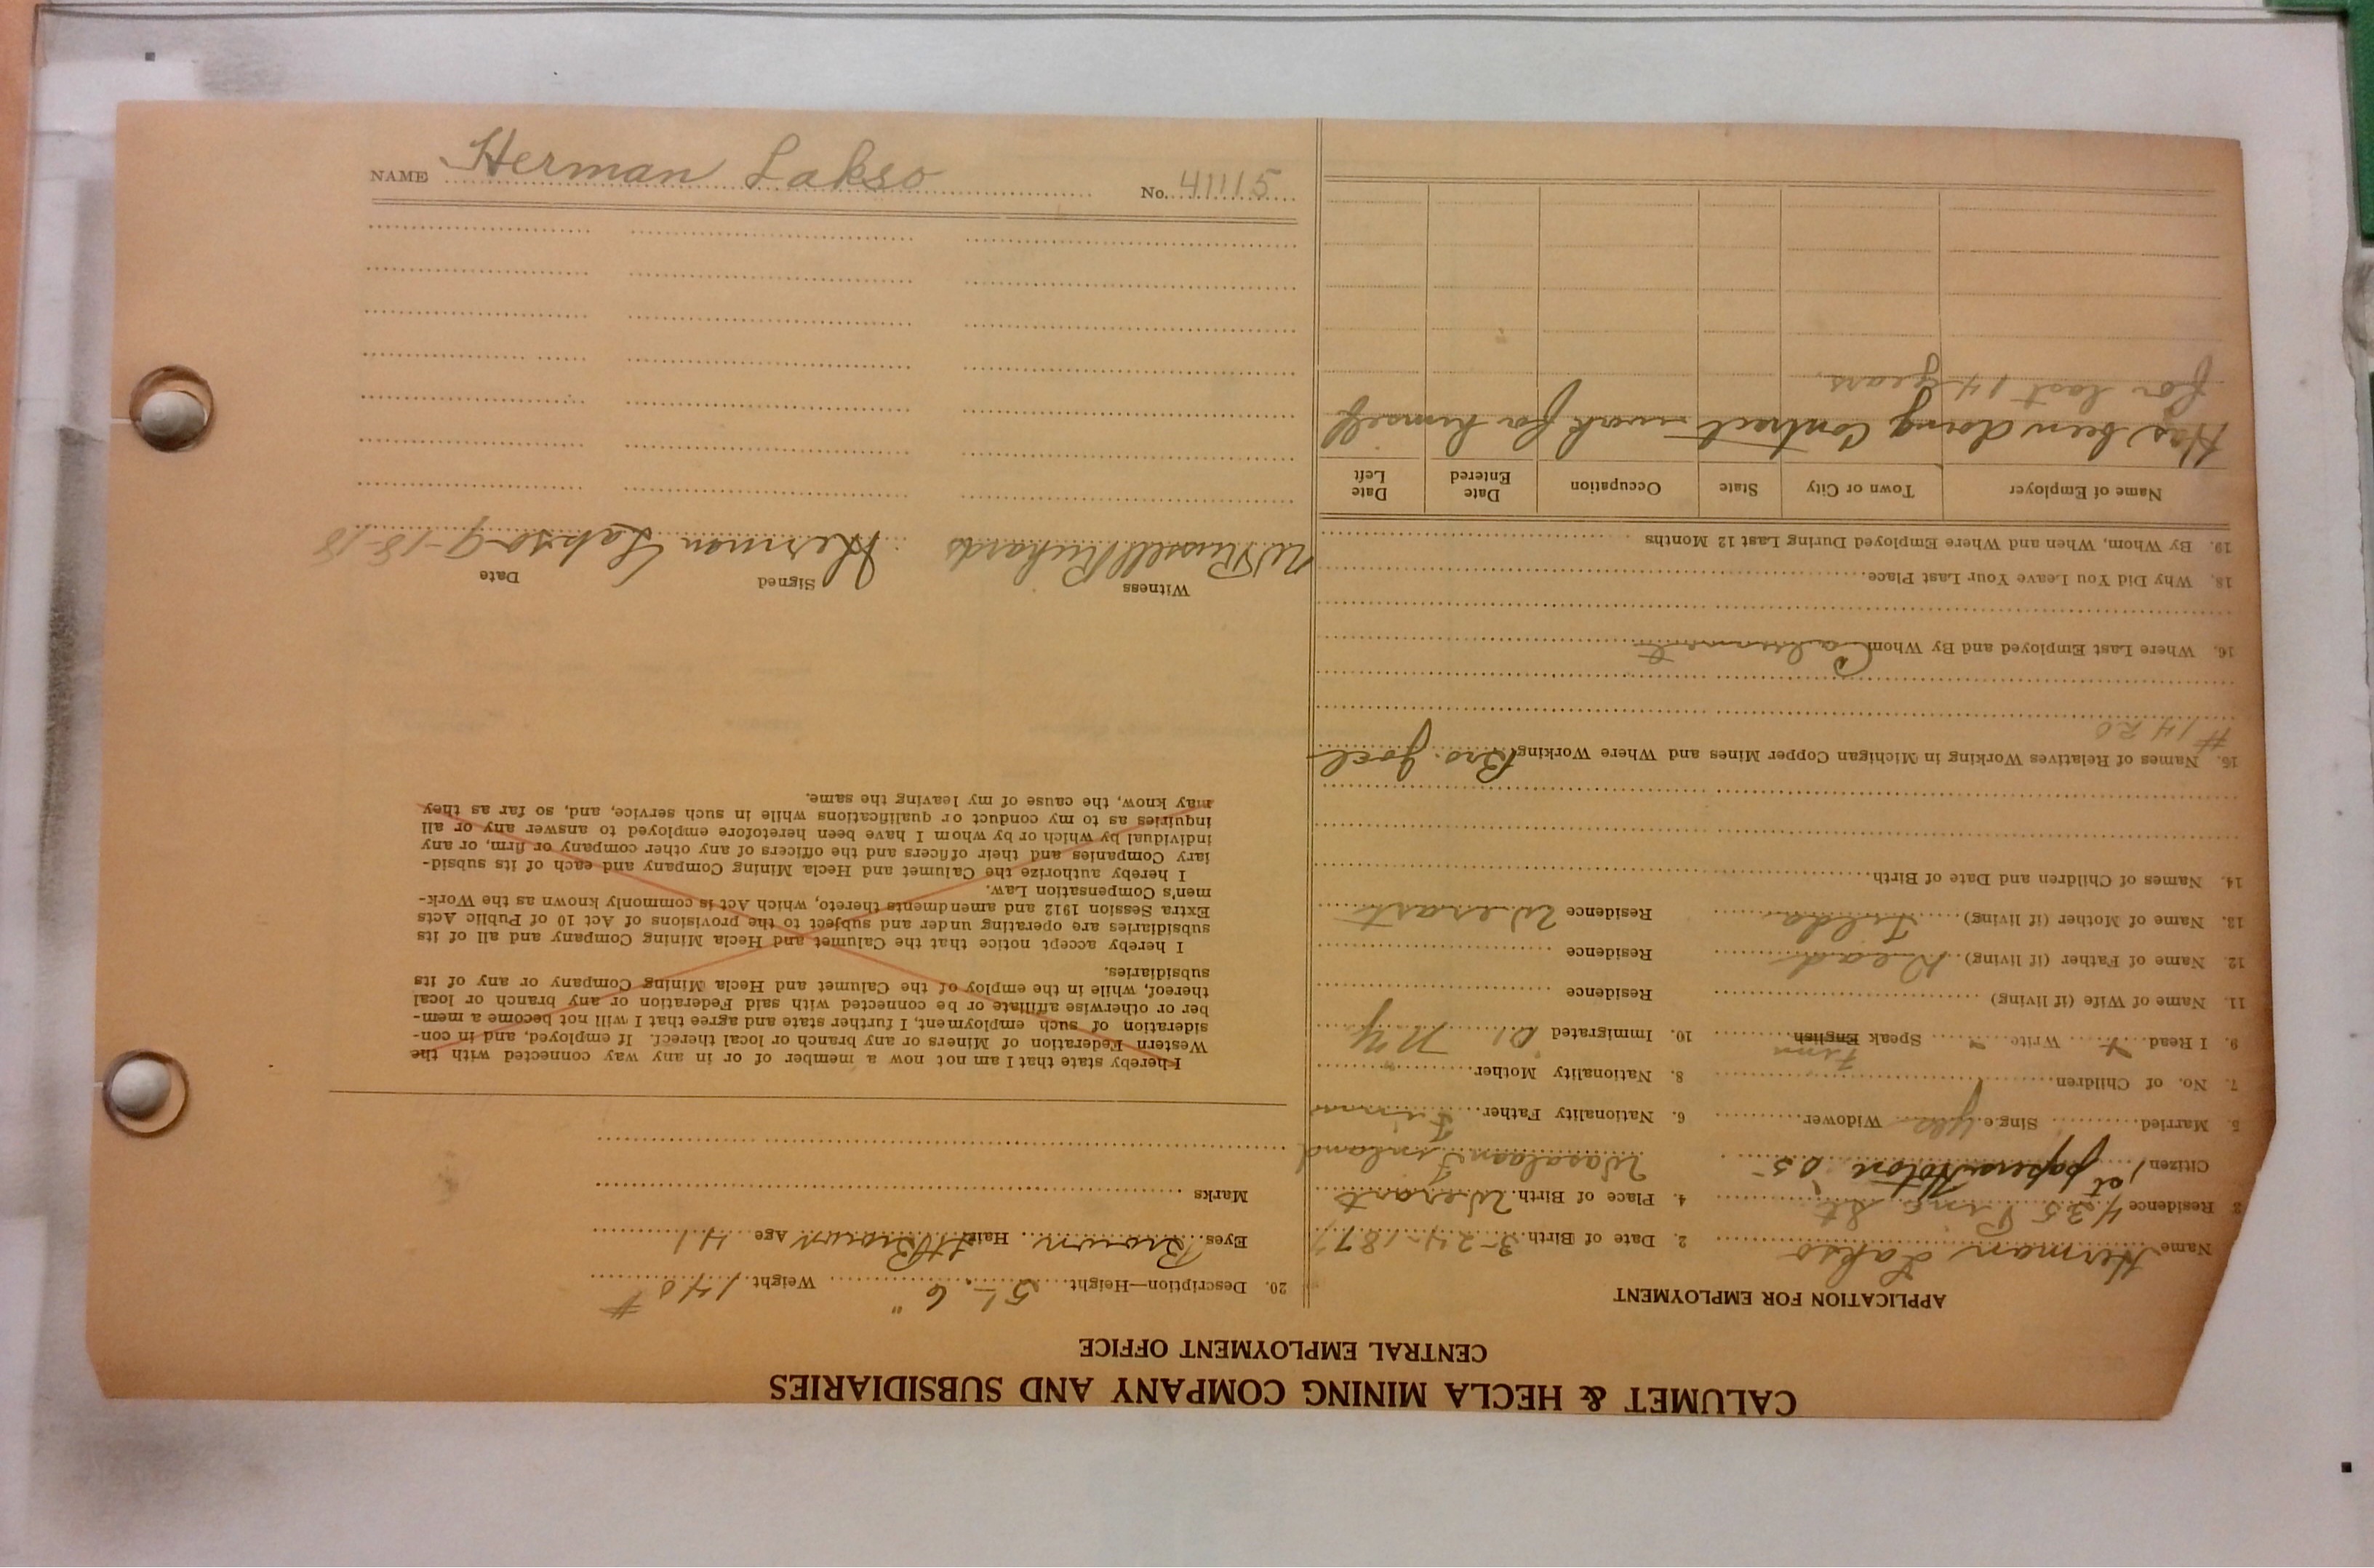 CALUMET & HECLA MINING COMPANY AND SUBSIDIARIES
CENTRAL EMPLOYMENT OFFICE
APPLICATION FOR EMPLOYMENT
Name Herman Lakso 2. Date of Birth 3-24-187
3 Residence 435 Pine St. 4. Place of Birth
Citizen 1st papers Finland
5. Married Single yes Widower 6. Nationality Father Finn
7. No. of Children 8. Nationality Mother "
9. I Read Write Speak English Finn 10. Immigrated 01 N Y
11. Name of Wife (if living) Residence
12. Name of Father (if living) Dead Residence
13. Name of Mother (if living) Residence
14. Names of Children and Date of Birth
16. Names of Relatives Working in Michigan Copper Mines and Where Working Bro. Joel
#1420
16. Where Last Employed and By Whom Calumet
18. Why Did You Leave Your Last Place
19. By Whom, When and Where Employed During Last 12 Months
Name of Employer Town or City State Occupation Date Entered Date Left
Has been doing contract work for himself
for last 14 years.
20. Description—Height 5'-6" Weight 140 #
Eyes Brown Hair Lt Brown Age 41
Marks
I hereby state that I am not now a member of or in any way connected with the
Western Federation of Miners or any branch or local thereof. If employed, and in con-
sideration of such employment, I further state and agree that I will not become a mem-
ber or otherwise affiliate or be connected with said Federation or any branch or local
thereof, while in the employ of the Calumet and Hecla Mining Company or any of its
subsidiaries.
I hereby accept notice that the Calumet and Hecla Mining Company and all of its
subsidiaries are operating under and subject to the provisions of Act 10 of Public Acts
Extra Session 1912 and amendments thereto, which Act is commonly known as the Work-
men's Compensation Law.
I hereby authorize the Calumet and Hecla Mining Company and each of its subsid-
iary Companies and their officers and the officers of any other company or firm, or any
individual by which or by whom I have been heretofore employed to answer any or all
inquiries as to my conduct or qualifications while in such service, and, so far as they
may know, the cause of my leaving the same.
Witness Signed Date
W Russell Richards Herman Lakso 9-18-18
NAME Herman Lakso No. 41115